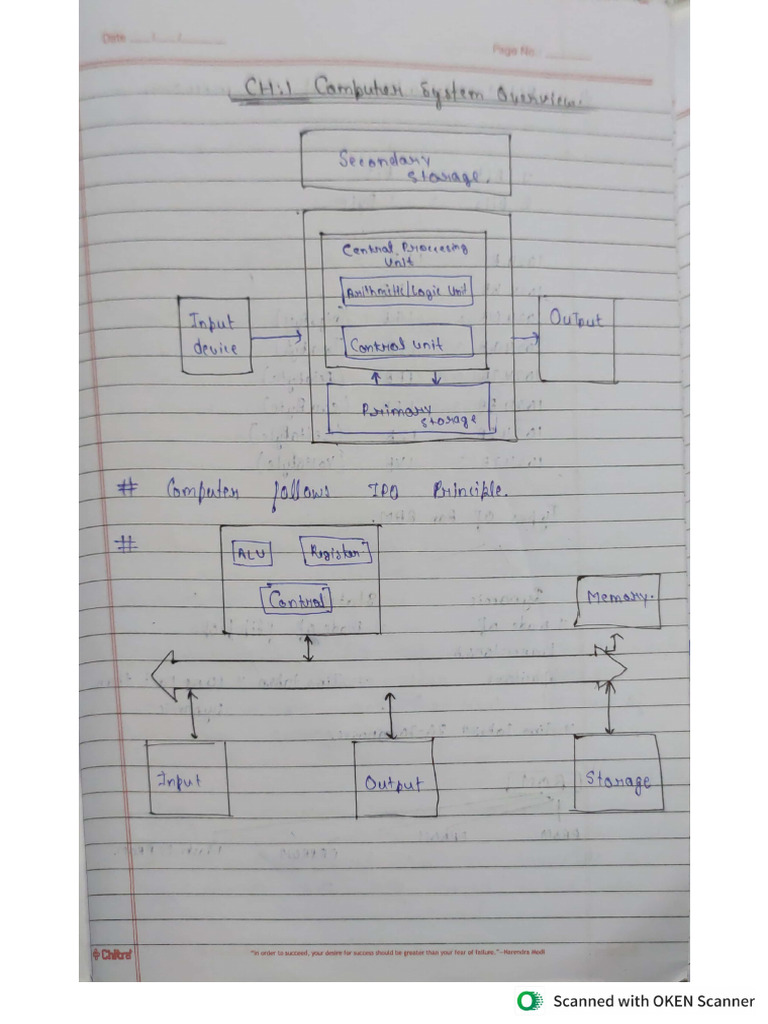 Date
Page No.
CH:1 Computer System Overview.
Secondary
Storage.
Central Processing
Unit
Arithmitic/Logic Unit
Input
device
Output
Control unit
Primary
Storage
# Computer follows IPO Principle.
#
ALU
Register
Control
Memory.
Input
Output
Storage
Chitra
"In order to succeed, your desire for success should be greater than your fear of failure." -Narendra Modi
Scanned with OKEN Scanner